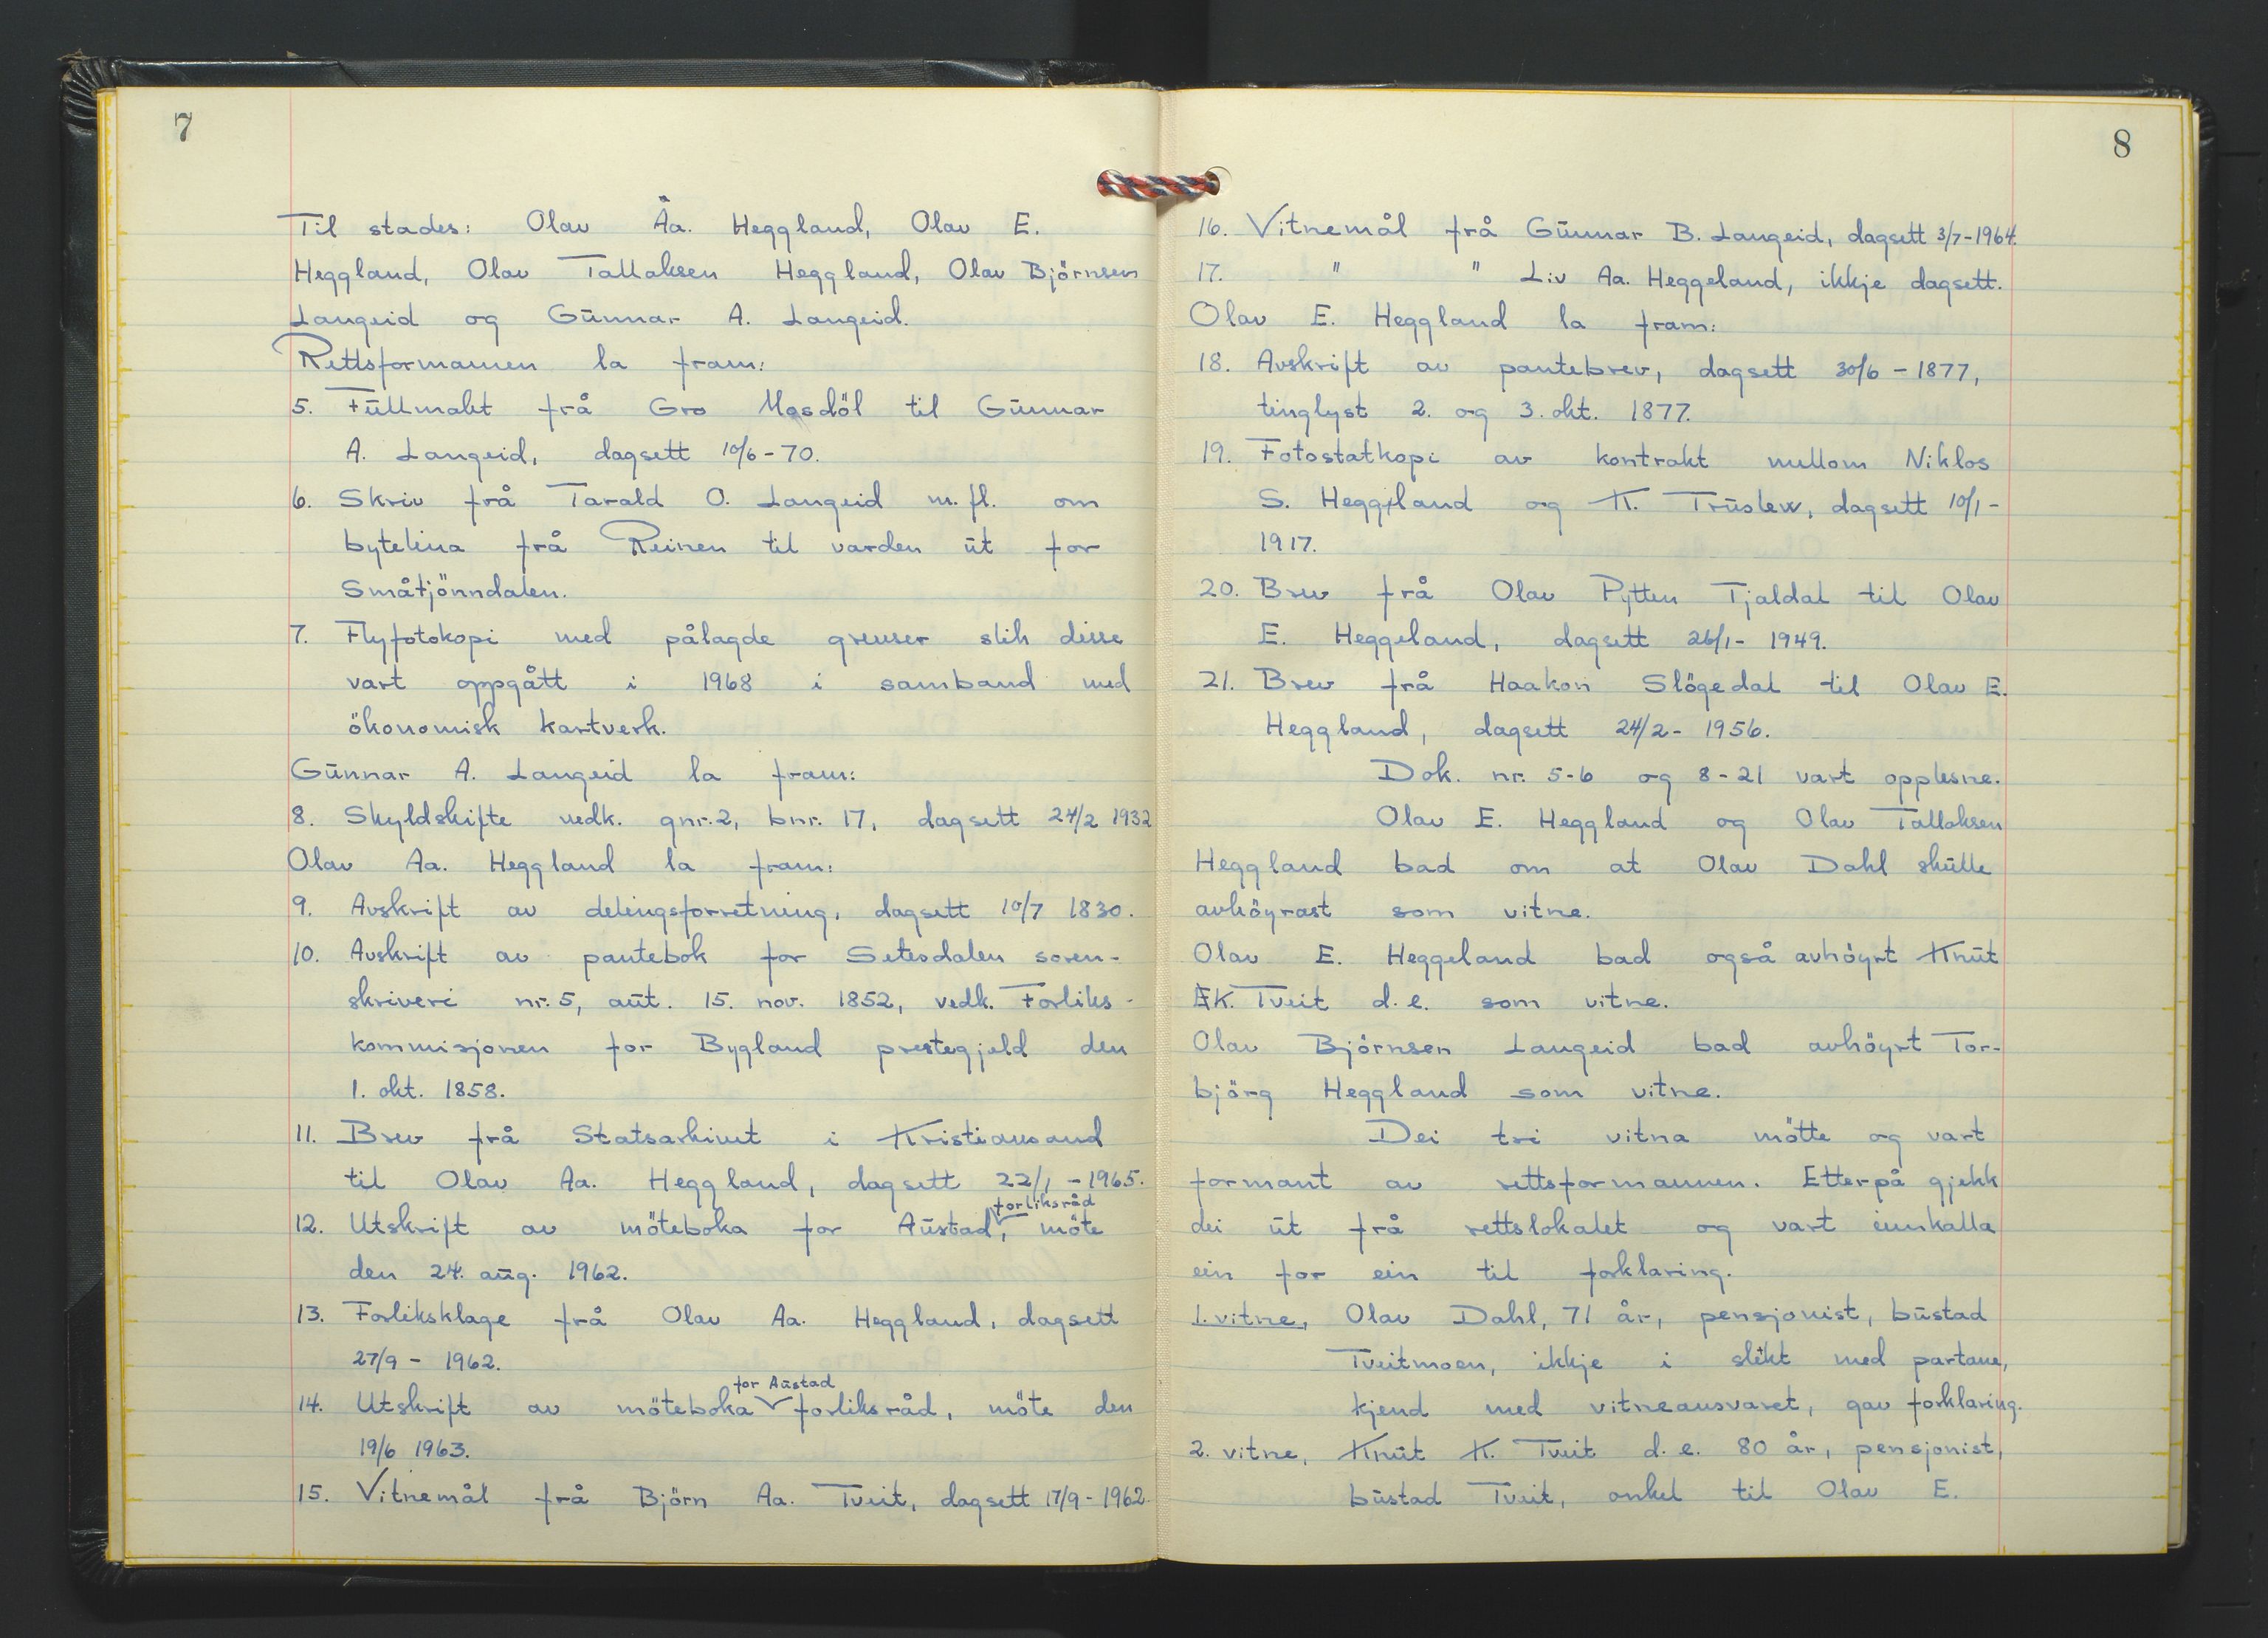 7
Til stades: Olav Åa. Heggland, Olav E.
Heggland, Olav Tallaksen Heggland, Olav Björnsen
Langeid og Gunnar A. Langeid.
Rettsformannen la fram:
5. Fullmakt frå Gro Mosdöl til Gunnar
A. Langeid, dagsett 10/6-70.
6. Skriv frå Tarald O. Langeid m.fl. om
bytelina frå Reinen til varden ut for
Småtjönndalen.
7. Flyfotokopi med pålagde grenser slik disse
vart oppgått i 1968 i samband med
ökonomisk kartverk.
Gunnar A. Langeid la fram:
8. Skyldskifte vedk. gnr. 2, bnr. 17, dagsett 24/2 1932
Olav Aa. Heggland la fram:
9. Avskrift av delingsforretning, dagsett 10/7 1830.
10. Avskrift av pantebok for Setesdalen soren-
skriveri nr. 5, aut. 15. nov. 1852, vedk. Forliks-
kommisjonen for Bygland prestegjeld den
1. okt. 1858.
11. Brev frå Statsarkivet i Kristiansand
til Olav Aa. Heggland, dagsett 22/1 - 1965.
12. Utskrift av möteboka for Austad forliksråd, möte
den 24. aug. 1962.
13. Forliksklage frå Olav Aa. Heggland, dagsett
27/9 - 1962.
14. Utskrift av möteboka for Austad forliksråd, möte den
19/6 1963.
15. Vitnemål frå Björn Aa. Tveit, dagsett 17/9-1962.
8
16. Vitnemål frå Gunnar B. Langeid, dagsett 3/7-1964.
17. " " Liv Aa. Heggeland, ikkje dagsett.
Olav E. Heggland la fram:
18. Avskrift av pantebrev, dagsett 30/6 - 1877,
tinglyst 2. og 3. okt. 1877.
19. Fotostatkopi av kontrakt mellom Niklos
S. Heggland og K. Truslew, dagsett 10/1-
1917.
20. Brev frå Olav Pytten Tjaldal til Olav
E. Heggeland, dagsett 26/1- 1949.
21. Brev frå Haakon Slögedal til Olav E.
Heggland, dagsett 24/2- 1956.
Dok. nr. 5-6 og 8-21 vart opplesne.
Olav E. Heggland og Olav Tallaksen
Heggland bad om at Olav Dahl skulle
avhöyrast som vitne.
Olav E. Heggeland bad også avhöyrt Knut
K. Tveit d.e. som vitne.
Olav Björnsen Langeid bad avhöyrt Tor-
björg Heggland som vitne.
Dei tri vitna mötte og vart
formant av rettsformannen. Etterpå gjekk
dei ut frå rettslokalet og vart innkalla
ein for ein til forklaring.
1. vitne, Olav Dahl, 71 år, pensjonist, bustad
Tveitmoen, ikkje i slekt med partane,
kjend med vitneansvaret, gav forklaring.
2. vitne, Knut K. Tveit d.e. 80 år, pensjonist,
bustad Tveit, onkel til Olav E.